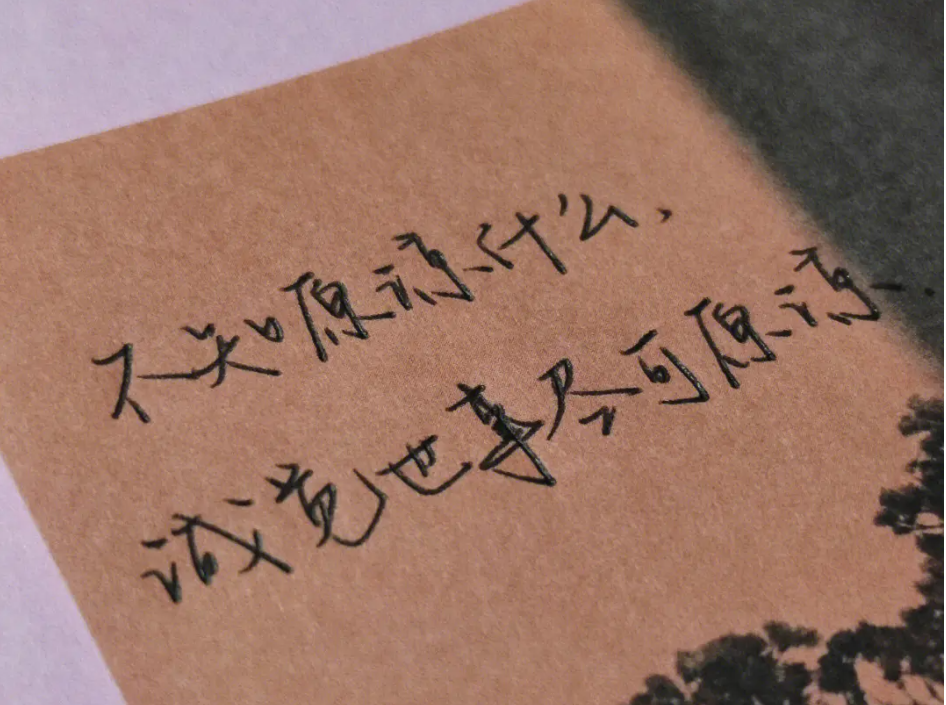 不知原谅什么,
诚觉世事尽可原谅.